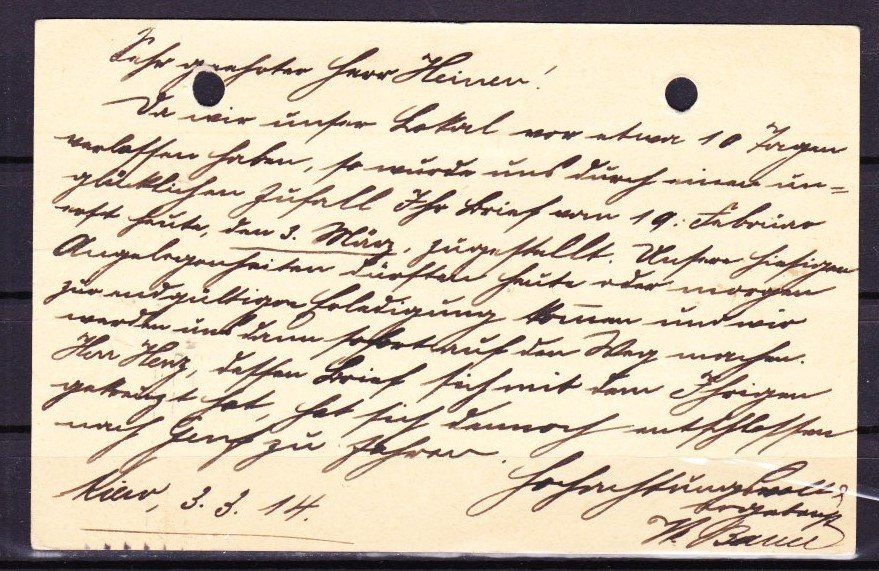 Sehr geehrter Herr Heinen!
Da wir unser Lokal vor etwa 10 Tagen
verlassen haben, so wurde uns durch einen un=
glücklichen Zufall Ihr Brief vom 19. Februar
erst heute, den 3. März, zugestellt. Unsere hiesigen
Angelegenheiten dürften heute oder morgen
zur endgültigen Erledigung kommen und wir
werden uns dann sofort auf den Weg machen.
Herr Henz, dessen Brief sich mit dem Ihrigen
gekreuzt hat, hat sich dennoch entschlossen
nach Genf zu fahren.
Hochachtungsvoll &
ergebenst
Kiew, 3. 3. 14.
W.